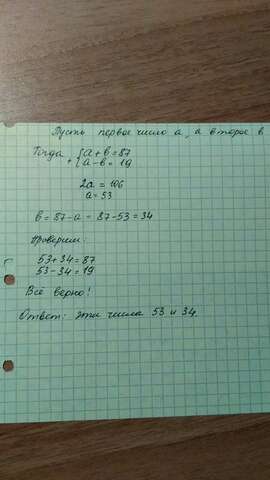 Пусть первое число a, а второе в
Тогда {a + в = 87
+ {a - в = 19
2a = 106
a = 53
в = 87 - a = 87 - 53 = 34
Проверим:
53 + 34 = 87
53 - 34 = 19
Всё верно!
Ответ: эти числа 53 и 34